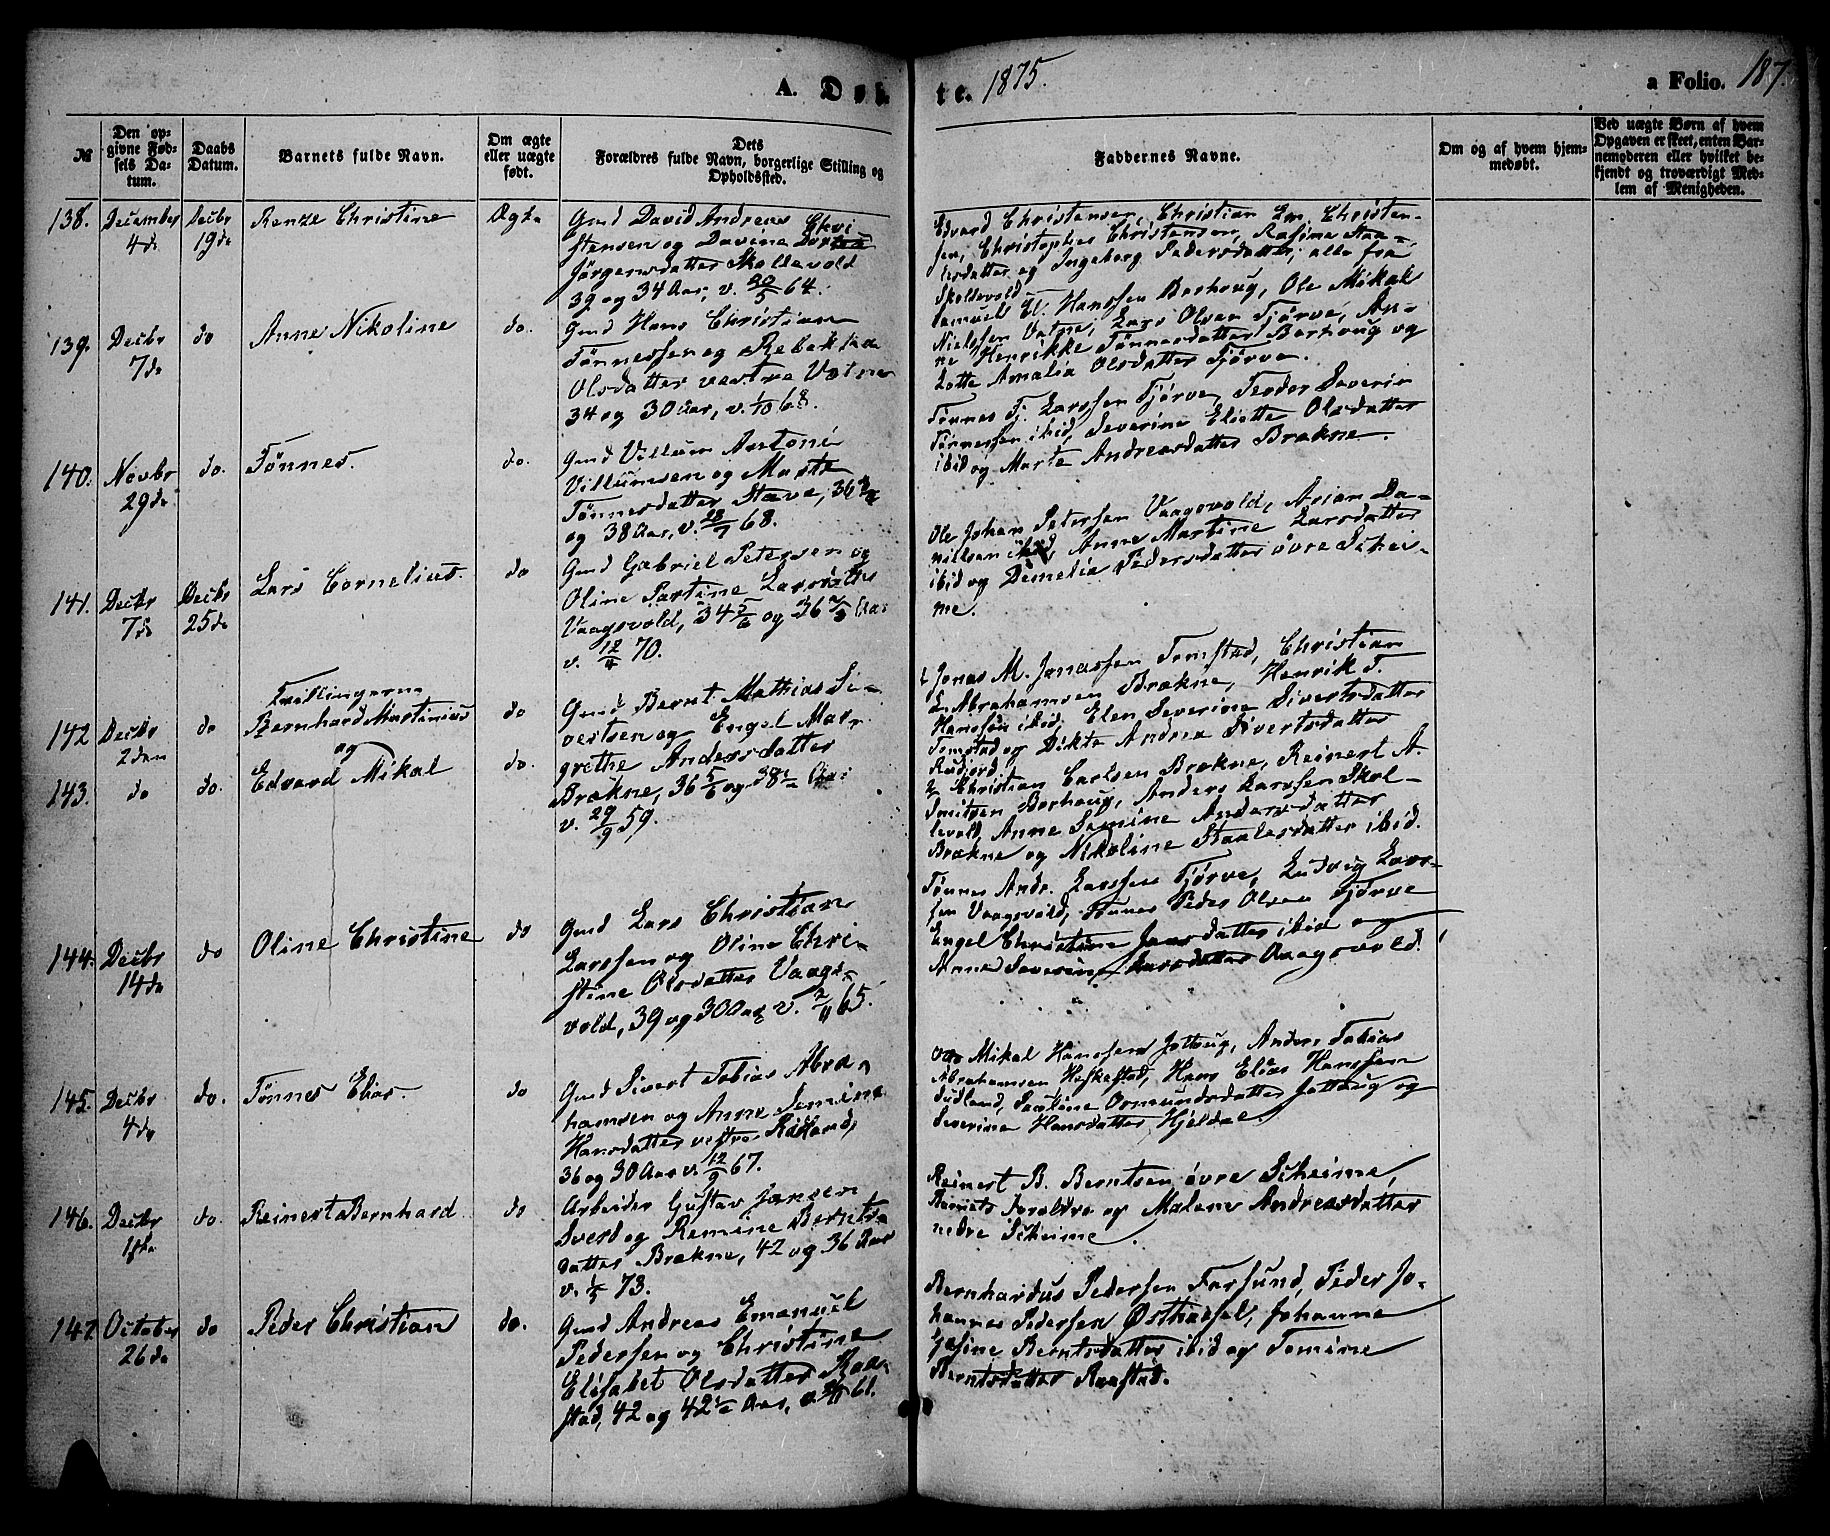 A. Døb-
te. 1875.
a Folio. 187.
№
Den op-
givne Fød-
sels Da-
tum.
Daabs
Datum.
Barnets fulde Navn.
Om ægte
eller uægte
født.
Dets
Forældres fulde Navn, borgerlige Stilling og
Opholdssted.
Faddernes Navne.
Om og af hvem hjem-
medøbt.
Ved uægte Børn af hvem
Opgaven er skeet, enten Bar-
nemoderen eller hvilket be-
kjendt og troværdigt Med-
lem af Menigheden.
138. December Decbr Renze Christine Ægte Gmd David Andreas Chri
4de 19de stensen og Davine
Jørgensdatter Skollevold
39 og 34 Aar, v. 20/5 64.
Edvard Christensen, Christian Em. Christen-
sen, Christopher Christensen, Rasine Staa-
lesdatter og Ingeborg Pedersdatter, alle fra
Skollevold
139. Decbr do Anne Nikoline do. Gmd Hans Christian
7de Tønnessen og Rebekka
Olsdatter vestre Vatne
34 og 30 Aar, v. 1/10 68.
Samuel El. Hanssen Borhoug, Ole Mikal
Nielssen Vatne, Lars Olsen Tjørve, An-
ne Henrikke Tønnesdatter Borhoug og
Lotte Amalia Olsdatter Tjørve.
140. Novbr do. Tønnes. do. Gmd Villum Antoni
29de Villumsen og Marte
Tønnesdatter Stave, 36
og 38 Aar, v. 68.
Tønnes Tj. Larssen Tjørve, Teodor Severin
Tønnessen ibid, Severine Elisette Olsdatter
ibid og Marte Andreasdatter Brækne.
141. Decbr Decbr Lars Cornelius. do Gmd Gabriel Petersen og
7de 25de Oline Partine Larsdatter
Vaagsvold, 34 5/6 og 36 Aar
v. 12/4 70.
Ole Johan Petersen Vaagsvold, Arian Da-
nielsen ibid, Anne Martine Larsdatter
ibid og Demelia Pedersdatter øvre Schei-
me.
Tvillingerne
142 Decbr do Bernhard Martinius do Gmd Bernt Mathias Si-
2den og vertsen og Engel Mar-
143. do do. Edvard Mikal do. grethe Andersdatter
Brækne, 36 5/6 og 38½ Aar
v. 29/9 59.
Jonas M. Jonassen Tomstad, Christian
Abrahamsen Brækne, Henrik T.
Hanssen ibid, Elen Severine Sivertsdatter
Tomstad og Dikte Andrea Sivertsdatter
Rudjord
Christian Carlsen Brækne, Reinert A
Smitsen Borhoug, Anders Larssen Skol-
levold, Anne Semine Andersdatter
Brækne og Nikoline Staalesdatter ibid.
144. Decbr do Oline Christine do Gmd Lars Christian
14de Larssen og Oline Chri-
stine Olsdatter Vaags-
vold, 39 og 30 Aar v. 2/11 65.
Tønnes Andr. Larssen Tjørve, Ludvig Lars-
sen Vaagsvold, Tønnes Peder Olsen Tjørve
Engel Christine datter ibid og
Anne Severine Larsdatter Vaagsvold.
145. Decbr do. Tønnes Elias. do Gmd Sivert Tobias Abra-
4de hamsen og Anne Semine
Hansdatter vestre
36 og 30 Aar v. 12/9 67.
Otto Mikal Hanssen Jølloug, Anders Tobias
Abrahamsen Heskestad, Hans Elias Hanssen
Sudland, Ormundsdatter og
Severine Hansdatter Hjeldal.
146. Decbr do. Reinert Bernhard. do Arbeider Gustav Jansen
1ste Sverd og Remine Bernts-
datter Brækne, 42 og 36 Aar
v. 1/5 73.
Reinert B. Berntsen øvre Scheime,
Barnets Forældre og Malene Andreasdatter
nedre Scheime.
147. October do Peder Christian do. Gmd Andreas Emanuel
26de Pedersen og Christine
Elisabet Olsdatter Raa-
stad, 42 og 42½ Aar, 61.
Bernhardus Pedersen Farsund, Peder Jo-
hannes Pedersen Østhassel, Johanne
Gesine Berntsdatter ibid og Tomine
Berntsdatter Raastad.